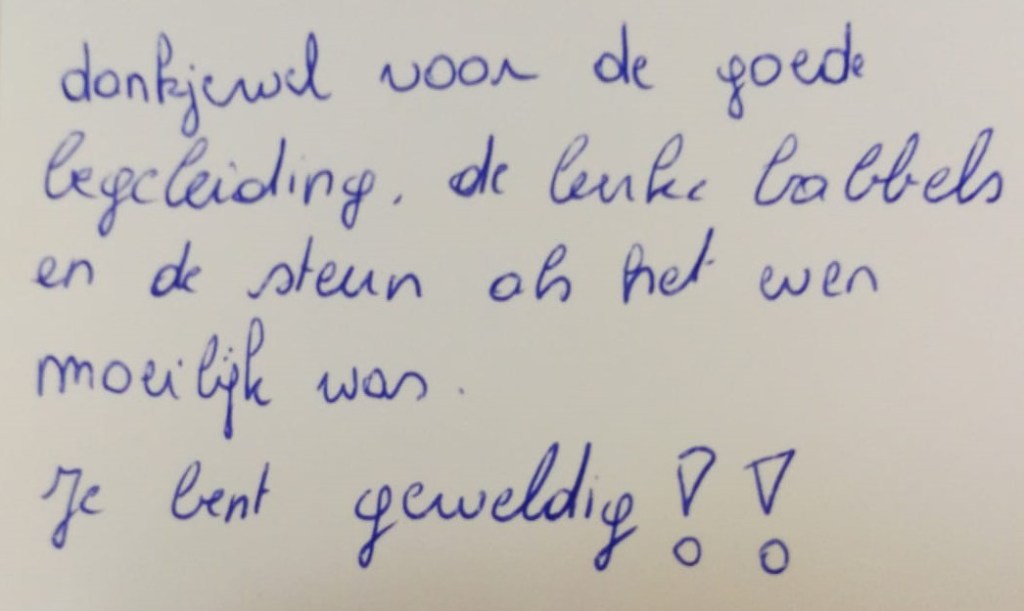 dankjewel voor de goede
begeleiding, de leuke babbels
en de steun als het even
moeilijk was.
Je bent geweldig!!